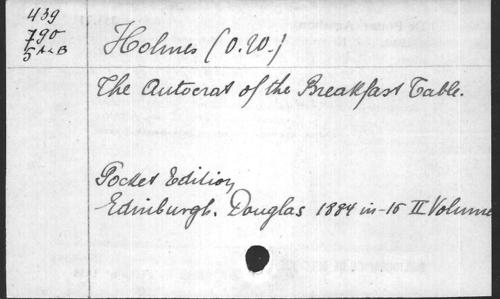 439
790
5 A & B
Holmes (O.W.)
The Autocrat of the Breakfast Table.
Pocket Edition,
Edinburgh. Douglas 1884 in-16 II Volume